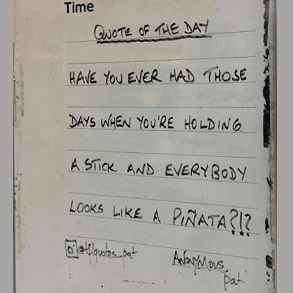 Time
QUOTE OF THE DAY
HAVE YOU EVER HAD THOSE
DAYS WHEN YOU'RE HOLDING
A STICK AND EVERYBODY
LOOKS LIKE A PIÑATA?!?
ANONYMOUS
pat